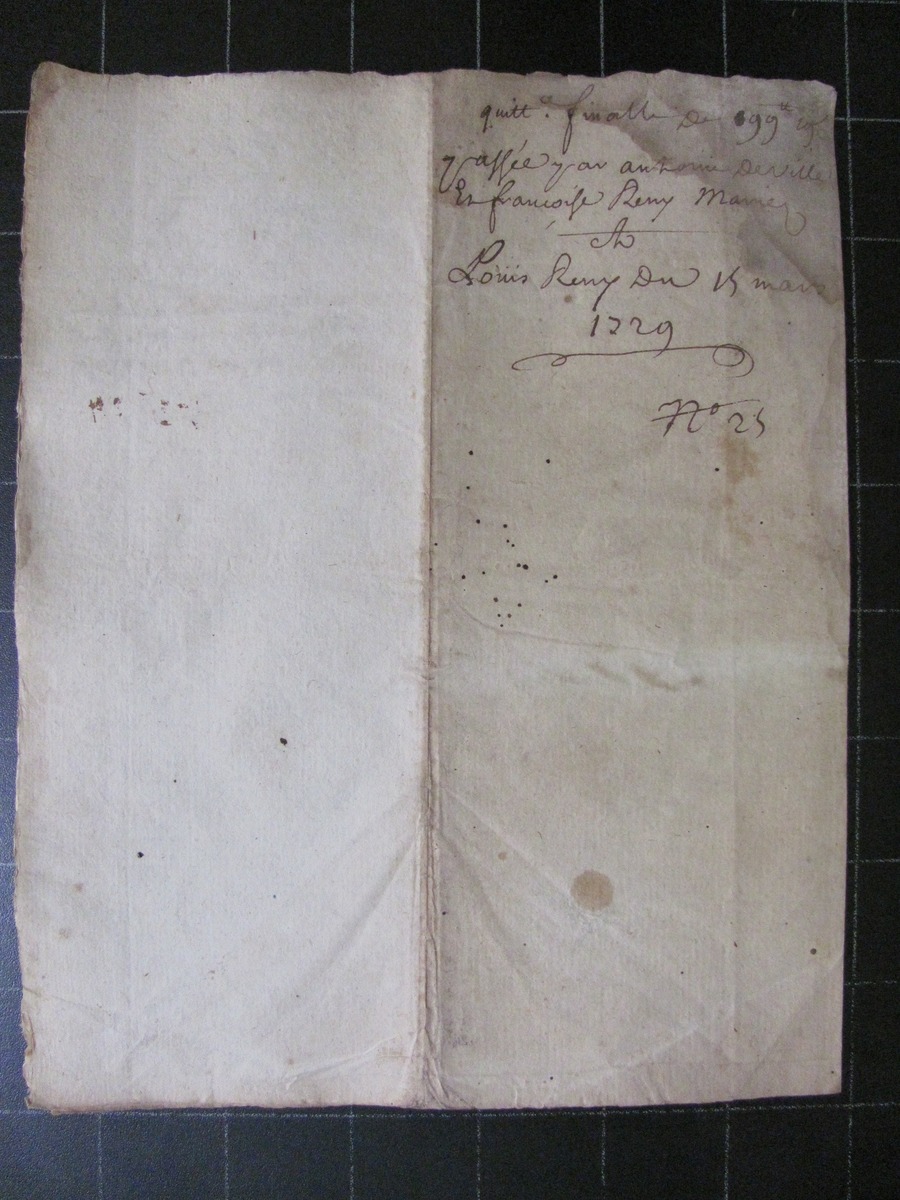 quitt.ce finalle De 199tt
passée par anthoine Deville
Et francoise Remy Mariez
A
Louis Remy Du 15 mars
1729
No 25